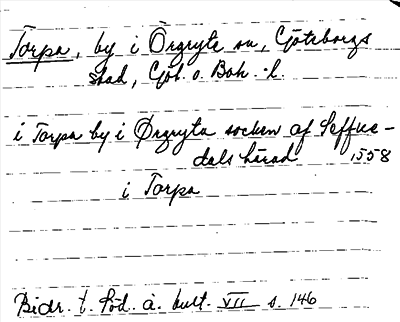 Torpa, by i Örgryte sn, Göteborgs
stad, Göt. o. Boh. l.
i Torpa by i Ørgryta socken af Seffue-
dals härad 1558
i Torpa
Bidr. t. Söd. à. hult. VII s. 146